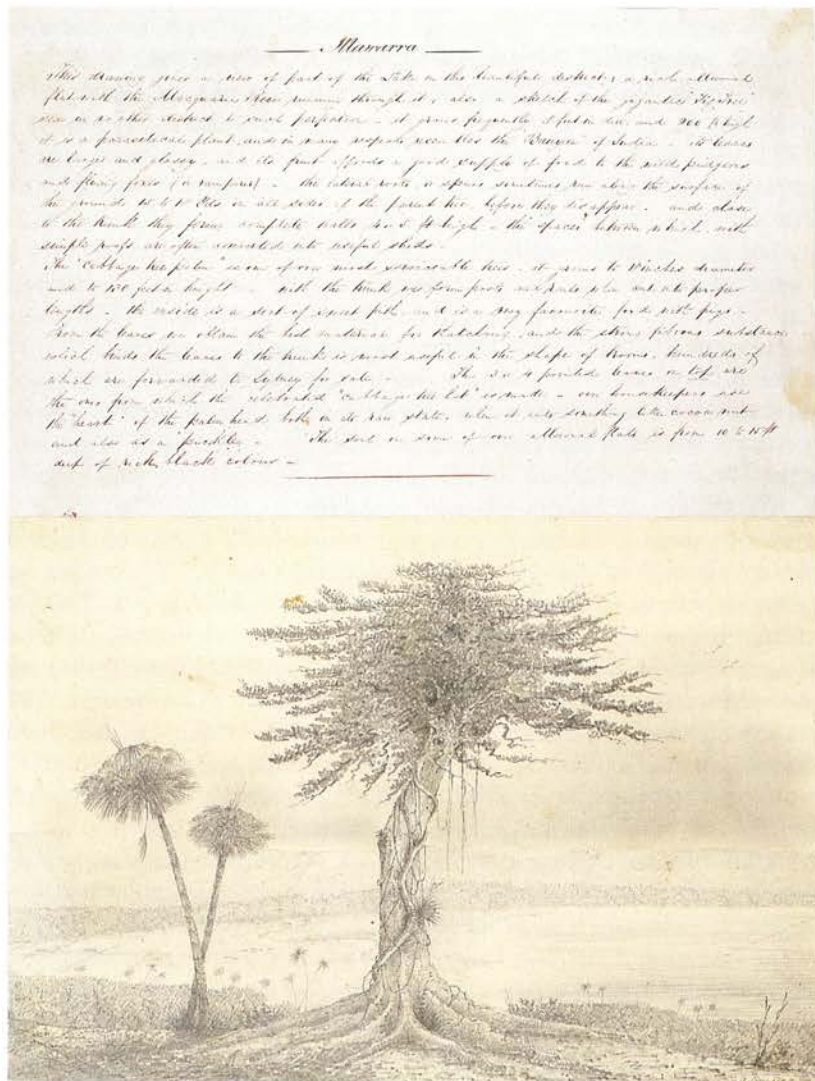 Illawarra
This drawing gives a view of part of the Lake in this beautiful district, a rich alluvial
flat with the Macquarie River running through it, also a sketch of the gigantic "Fig Tree"
seen in no other district in such perfection - it grows frequently feet in dia. and 200 ft high
it is a parasitical plant, and in many respects resembles the "Banyan" of India - its leaves
are large and glossy - and its fruit affords a good supply of food to the wild pidgeons
and flying foxes (or vampires) - the lateral roots, or spurs sometimes run along the surface of
the ground on all sides of the parent tree, before they disappear - and close
to the trunk they form complete walls 4 or 5 ft high - the "spaces" between which, with
simple roofs are often converted into useful sheds -
The "cabbage tree palm" is one of our most serviceable trees - it grows to inches diameter
and to 130 feet in height - with the trunk we form posts and rails when cut into proper
lengths - the inside is a sort of sweet pith, and is a very favourite food with pigs -
from the leaves we obtain the best material for thatching, and the strong fibrous substance
which binds the leaves to the trunk is most useful in the shape of brooms, hundreds of
which are forwarded to Sydney for sale - The 3 or 4 pointed leaves on top are
the ones from which the celebrated "cabbage tree hat" is made - our housekeepers use
the "heart" of the palm head both in its raw state, when it eats something like cocoa nut
and also as a pickle - The soil in some of our alluvial flats is from 10 to 15 ft
deep of rich black colour -